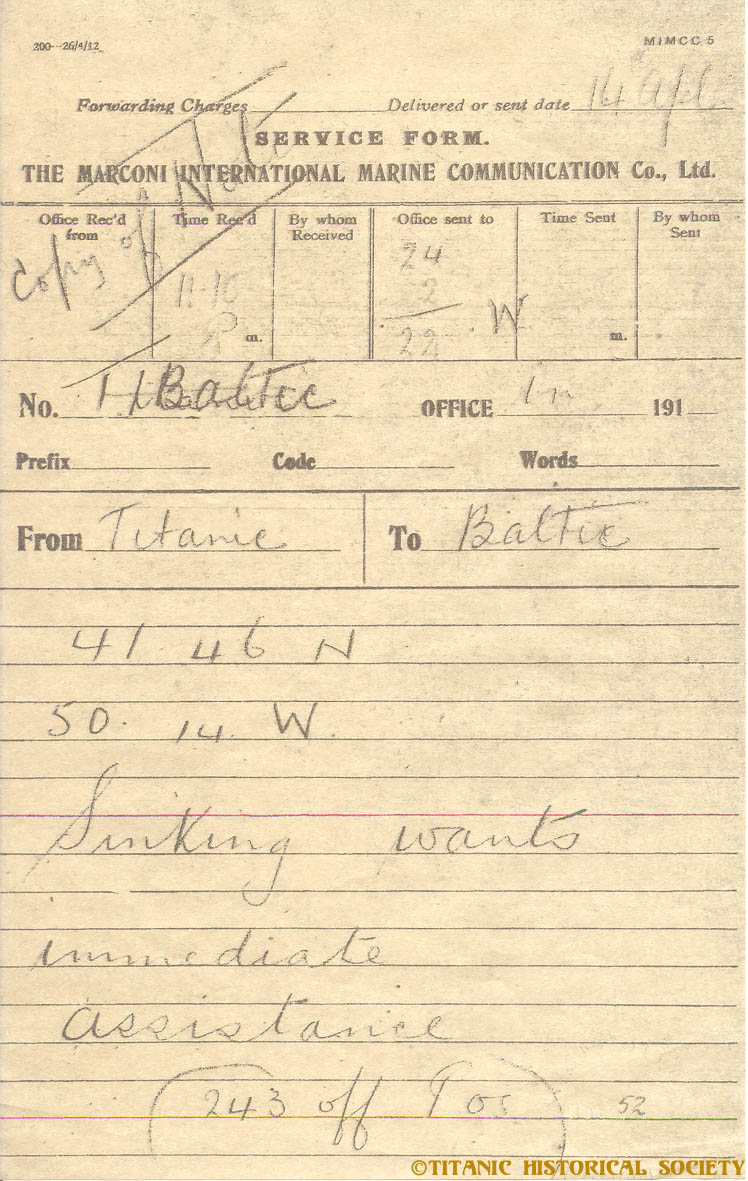 200--26/4/12
MIMCC 5
Forwarding Charges Delivered or sent date 14 Apl
SERVICE FORM.
THE MARCONI INTERNATIONAL MARINE COMMUNICATION Co., Ltd.
Copy of Note
Office Rec'd from
Time Rec'd
11-10 P m.
By whom Received
Office sent to
24
2
22
W
Time Sent
m.
By whom Sent
No. Baltic OFFICE 191
Prefix Code Words
From Titanic To Baltic
41 46 N
50. 14 W.
Sinking wants
immediate
assistance
243 off 52
©TITANIC HISTORICAL SOCIETY